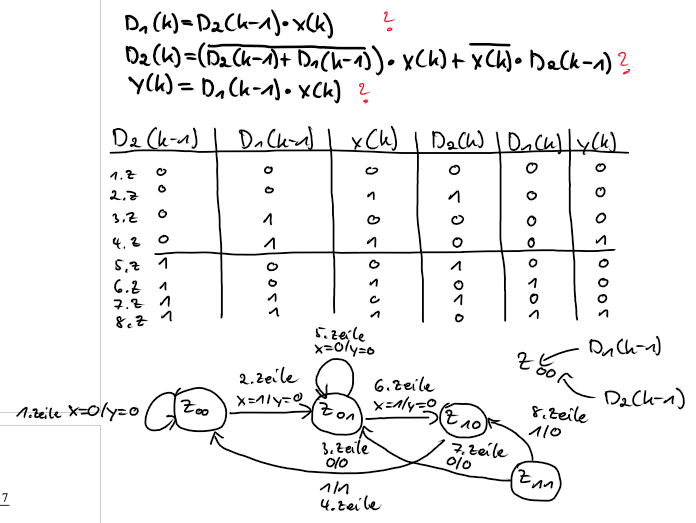 D₁(k)=D₂(k-1)·x(k) ?
D₂(k)=(D̅₂̅(̅k̅-̅1̅)̅+̅D̅₁̅(̅k̅-̅1̅)̅)·x(k)+x̅(̅k̅)̅·D₂(k-1) ?
y(k)=D₁(k-1)·x(k) ?
D₂(k-1) | D₁(k-1) | x(k) | D₂(k) | D₁(k) | y(k)
1.z 0 0 0 0 0 0
2.z 0 0 1 1 0 0
3.z 0 1 0 0 0 0
4.z 0 1 1 0 0 1
5.z 1 0 0 1 0 0
6.z 1 0 1 0 1 0
7.z 1 1 0 1 0 0
8.z 1 1 1 0 1 1
5.zeile
x=0/y=0
D₁(k-1)
Z₀₀
D₂(k-1)
2.zeile
x=1/y=0
6.zeile
x=1/y=0
1.zeile x=0/y=0
Z₀₀
Z₀₁
Z₁₀
8.zeile
1/0
3.zeile
0/0
7.zeile
0/0
Z₁₁
1/1
4.zeile
7